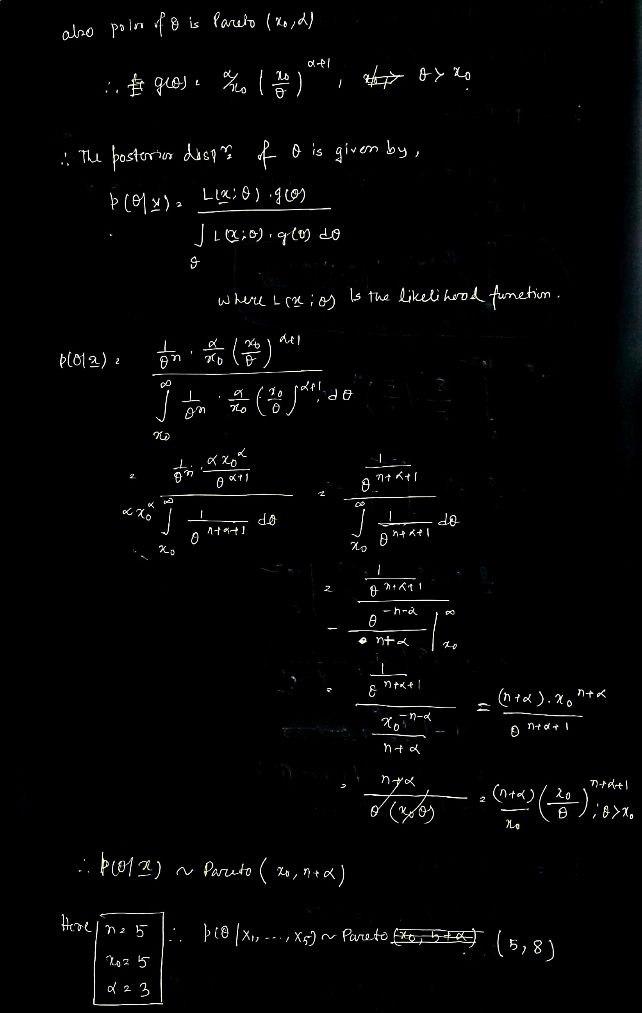 also polor of θ is Pareto (x₀, α)
∴ g(θ) = α/x₀ (x₀/θ)^(α+1), θ > x₀
∴ The posterior dispⁿ of θ is given by,
p(θ|x) = L(x;θ).g(θ) / ∫_θ L(x;θ).g(θ) dθ
where L(x;θ) is the likelihood function.
p(θ|x) = 1/θⁿ · α/x₀ (x₀/θ)^(α+1) / ∫_x₀^∞ 1/θⁿ · α/x₀ (x₀/θ)^(α+1) dθ
= 1/θⁿ · αx₀^α/θ^(α+1) / αx₀^α ∫_x₀^∞ 1/θ^(n+α+1) dθ = 1/θ^(n+α+1) / ∫_x₀^∞ 1/θ^(n+α+1) dθ
= 1/θ^(n+α+1) / - θ^(-n-α)/(n+α) |_x₀^∞
= 1/θ^(n+α+1) / x₀^(-n-α)/(n+α) = (n+α).x₀^(n+α) / θ^(n+α+1)
= n+α / θ(x₀θ) = (n+α)/x₀ (x₀/θ)^(n+α+1) ; θ>x₀
∴ p(θ|x) ~ Pareto (x₀, n+α)
Here n = 5 ∴ p(θ|x₁, ..., x₅) ~ Pareto (x₀, 5+α) (5,8)
x₀ = 5
α = 3